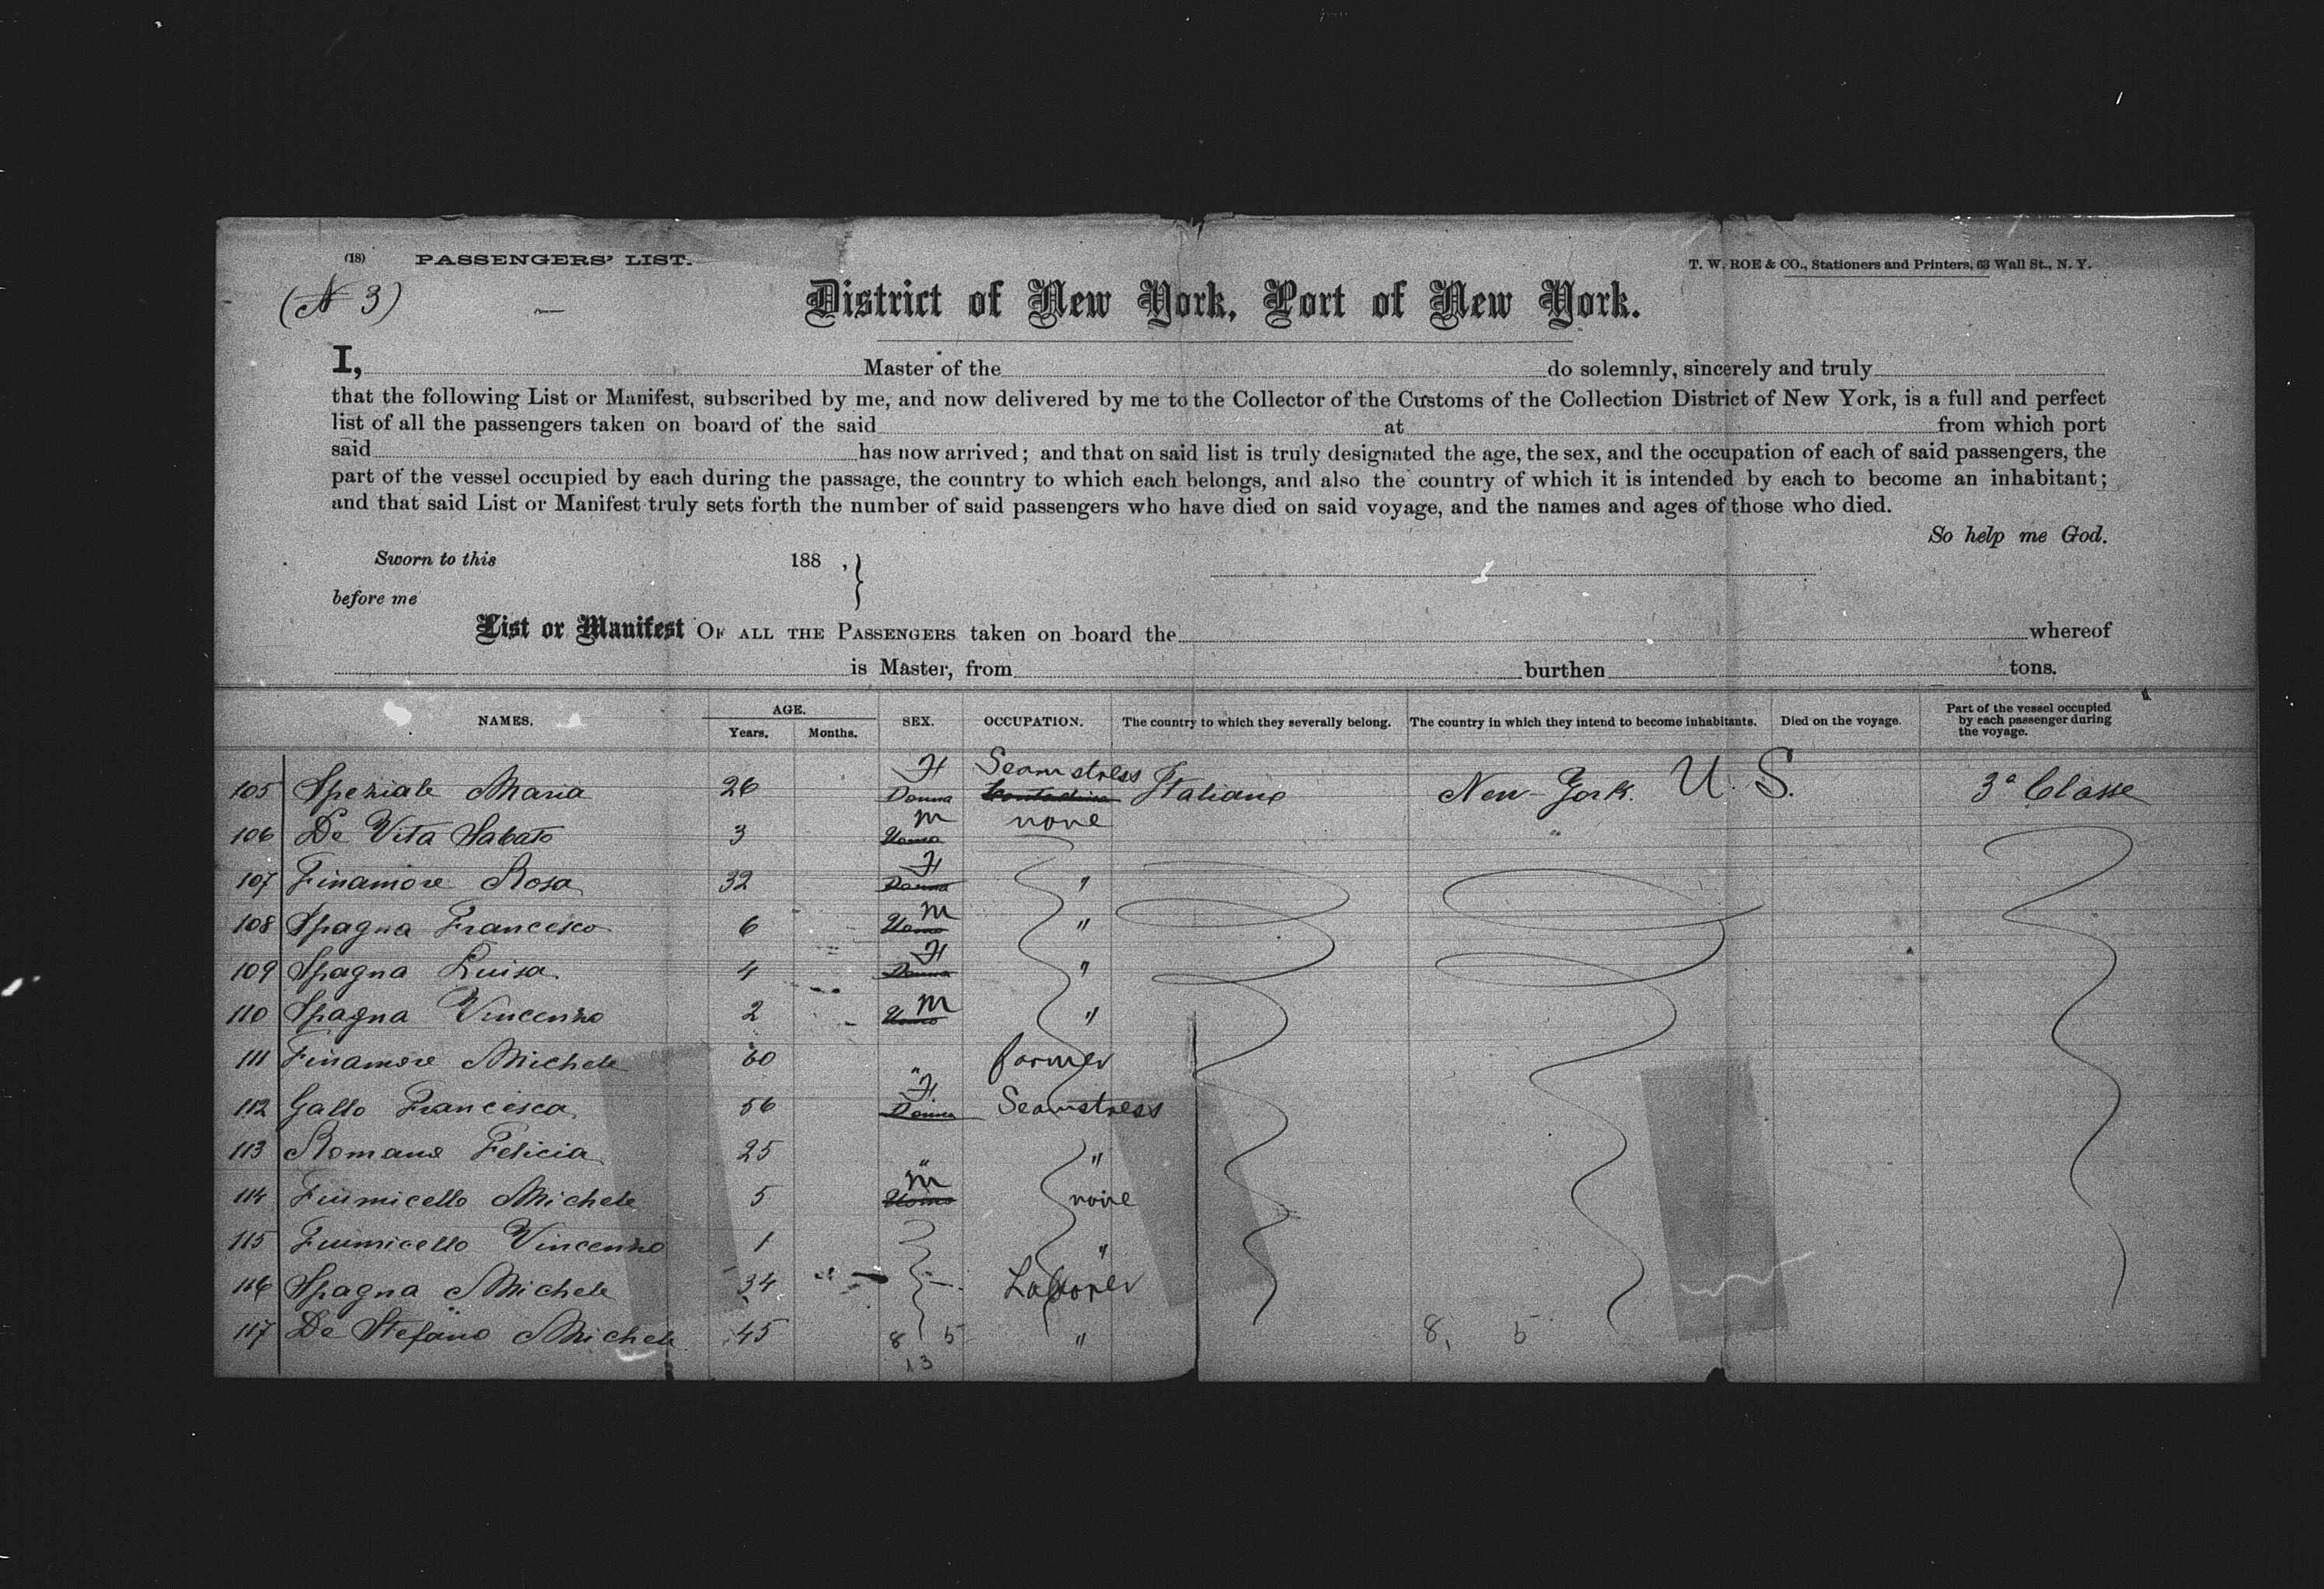 (18) PASSENGERS' LIST.
T. W. ROE & CO., Stationers and Printers, 63 Wall St., N. Y.
(N 3)
District of New York, Port of New York.
I, Master of the do solemnly, sincerely and truly
that the following List or Manifest, subscribed by me, and now delivered by me to the Collector of the Customs of the Collection District of New York, is a full and perfect
list of all the passengers taken on board of the said at from which port
said has now arrived; and that on said list is truly designated the age, the sex, and the occupation of each of said passengers, the
part of the vessel occupied by each during the passage, the country to which each belongs, and also the country of which it is intended by each to become an inhabitant;
and that said List or Manifest truly sets forth the number of said passengers who have died on said voyage, and the names and ages of those who died.
So help me God.
Sworn to this 188 ,
before me
List or Manifest OF ALL THE PASSENGERS taken on board the whereof
is Master, from burthen tons.
NAMES. AGE. Years. Months. SEX. OCCUPATION. The country to which they severally belong. The country in which they intend to become inhabitants. Died on the voyage. Part of the vessel occupied by each passenger during the voyage.
105 Speziale Maria 26 Donna F Contadina Seamstress Italiano New-York. U. S. 3a Classe
106 De Vita Sabato 3 Uomo m none "
107 Finamore Rosa 32 Donna F "
108 Spagna Francesco 6 Uomo m "
109 Spagna Luisa 4 Donna F "
110 Spagna Vincenzo 2 Uomo m "
111 Finamore Michele 60 " farmer
112 Gallo Francesca 56 Donna F. Seamstress
113 Romano Felicia 25 " "
114 Fiumicello Michele 5 Uomo m none
115 Fiumicello Vincenzo 1 "
116 Spagna Michele 34 Laborer
117 De Stefano Michele 45 8 5 " 8, 5
13